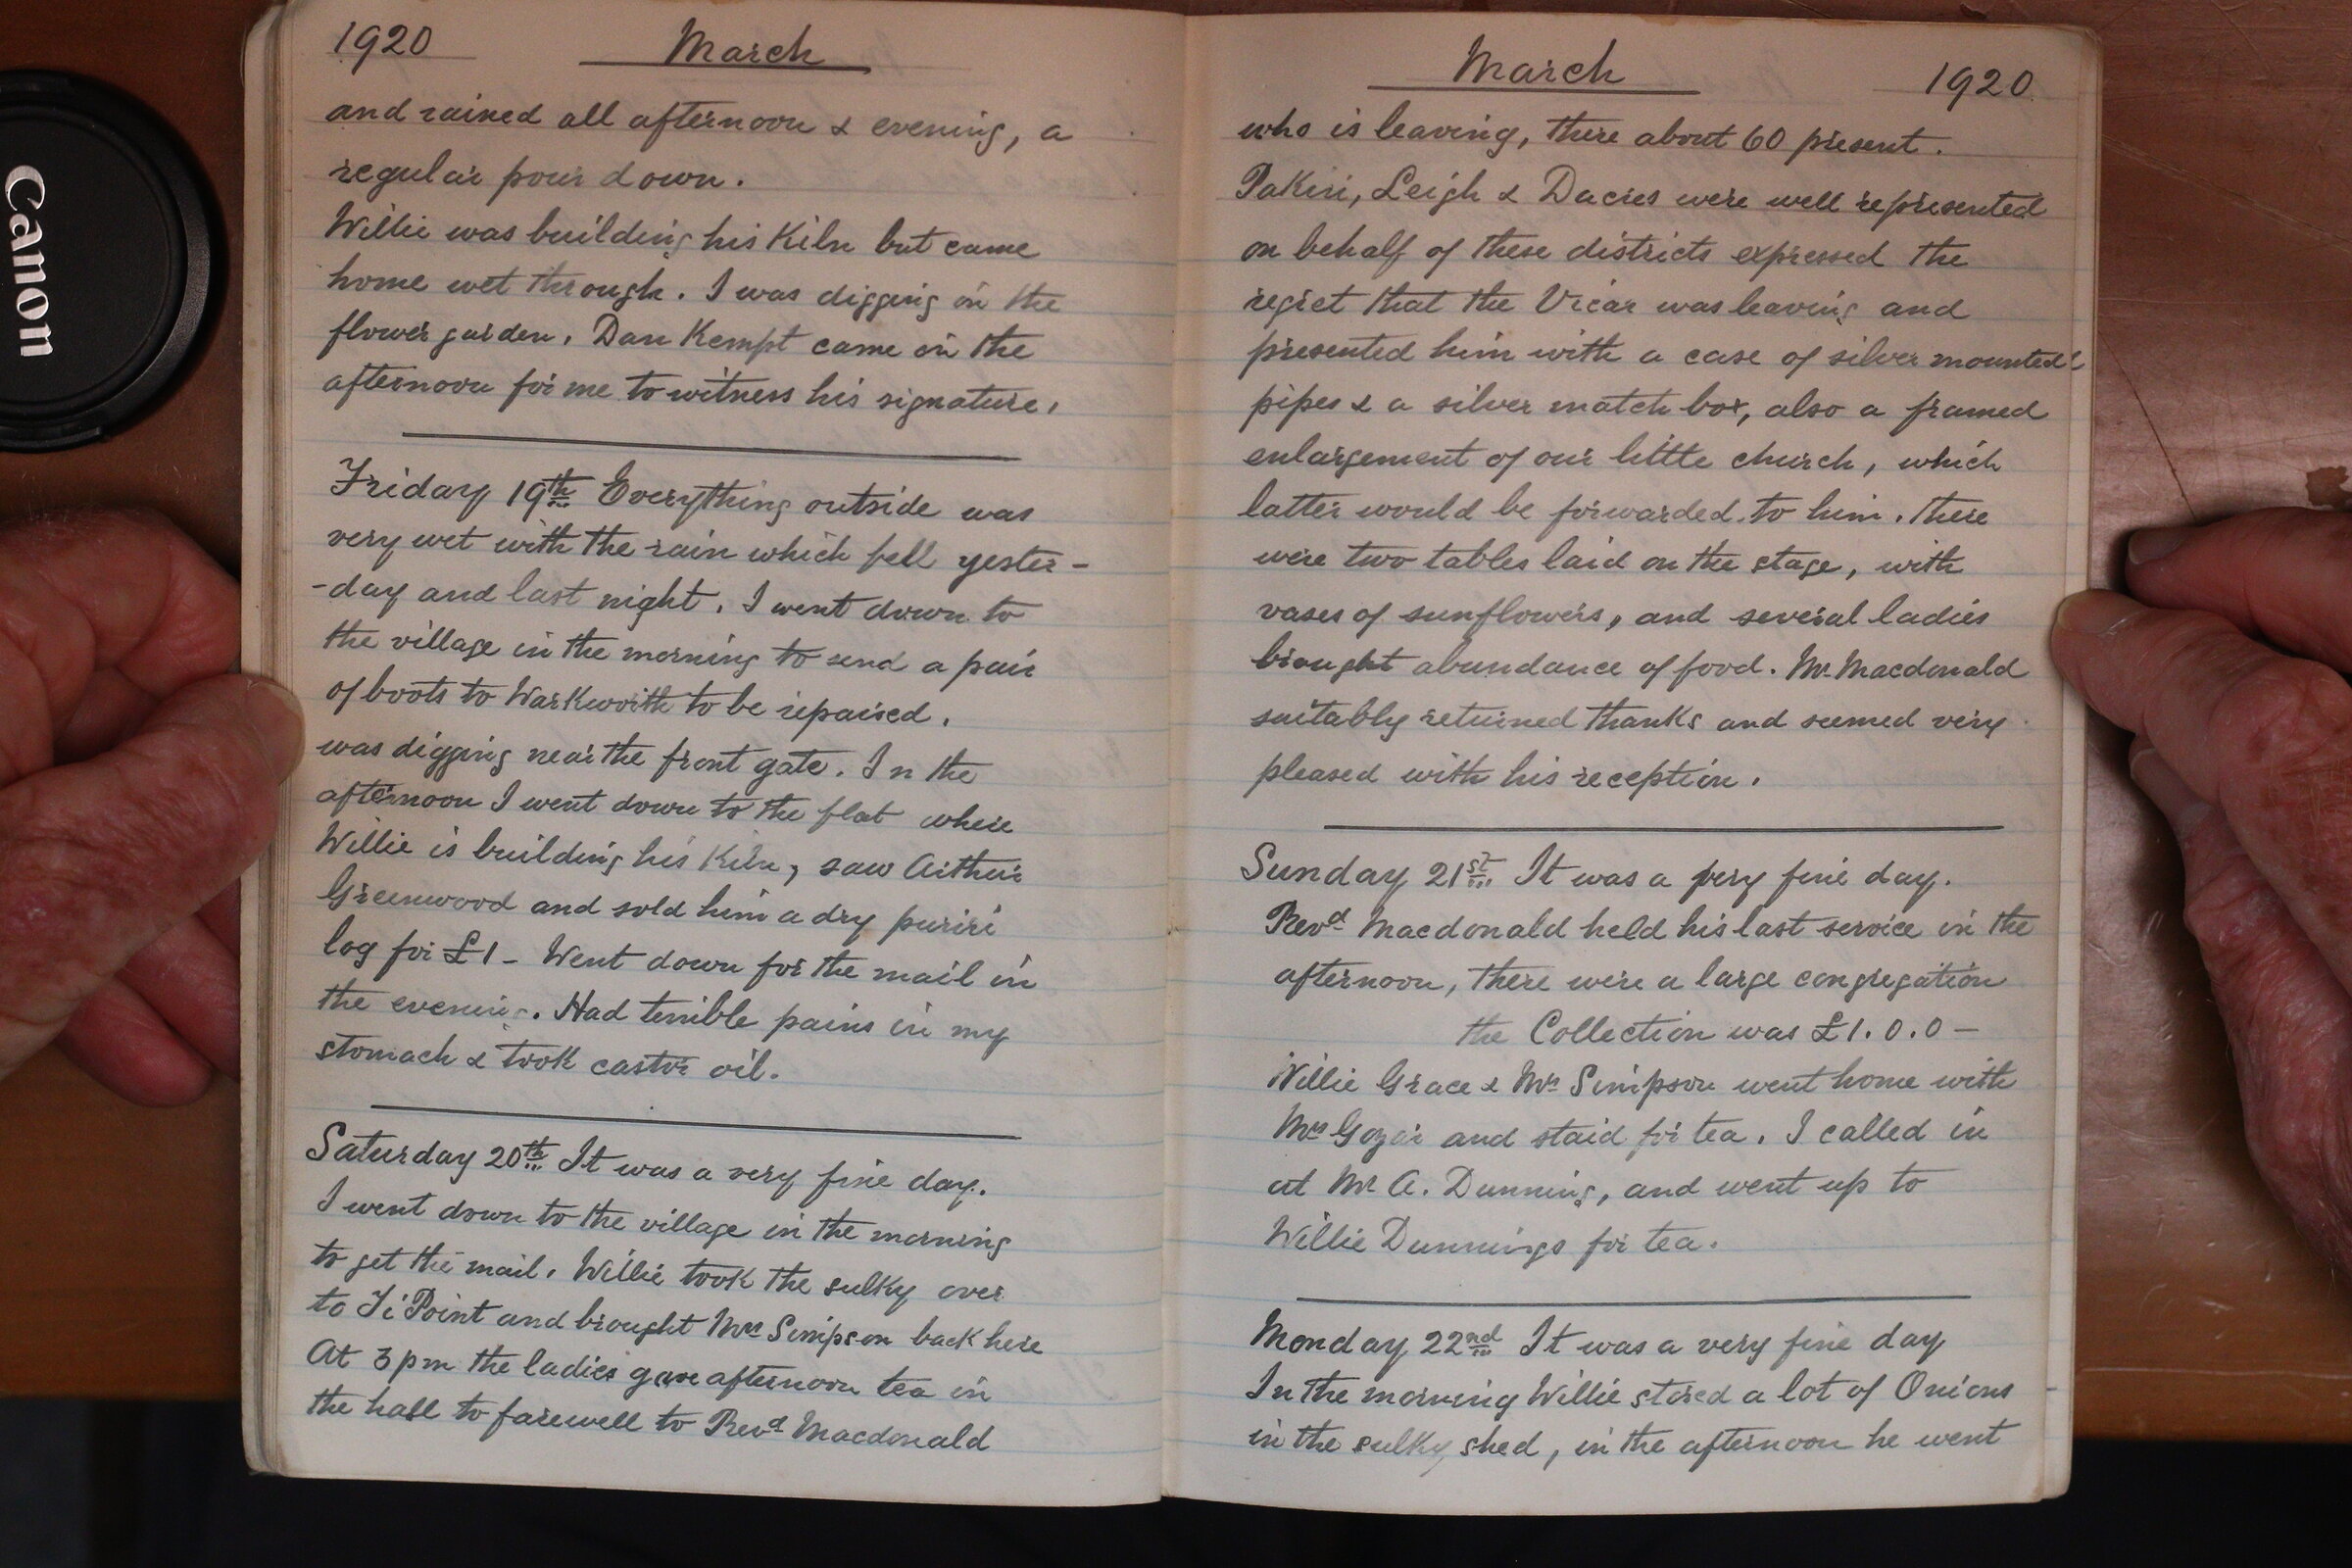 Canon
1920 March
and rained all afternoon & evening, a
regular pour down.
Willie was building his Kiln but came
home wet through. I was digging in the
flower garden. Dan Kempt came in the
afternoon for me to witness his signature.
Friday 19th Everything outside was
very wet with the rain which fell yester-
-day and last night. I went down to
the village in the morning to send a pair
of boots to Warkworth to be repaired.
was digging near the front gate. In the
afternoon I went down to the flat where
Willie is building his Kiln, saw Arthur
Greenwood and sold him a dry puriri
log for £1 - Went down for the mail in
the evening. Had terrible pains in my
stomach & took castor oil.
Saturday 20th It was a very fine day.
I went down to the village in the morning
to get the mail. Willie took the sulky over
to Ti Point and brought Mrs Simpson back here
At 3 pm the ladies gave afternoon tea in
the hall to farewell to Revd Macdonald
March 1920
who is leaving, there about 60 present.
Pakiri, Leigh & Dacres were well represented
on behalf of these districts expressed the
regret that the Vicar was leaving and
presented him with a case of silver mounted
pipes & a silver match box, also a framed
enlargement of our little church, which
latter would be forwarded to him. There
were two tables laid on the stage, with
vases of sunflowers, and several ladies
brought abundance of food. Mr Macdonald
suitably returned thanks and seemed very
pleased with his reception.
Sunday 21st It was a very fine day.
Revd Macdonald held his last service in the
afternoon, there were a large congregation
the Collection was £1.0.0 -
Willie Grace & Mrs Simpson went home with
Mrs and staid for tea. I called in
at Mr A. Dunning, and went up to
Willie Dunnings for tea.
Monday 22nd It was a very fine day
In the morning Willie stored a lot of Onions
in the sulky shed, in the afternoon he went